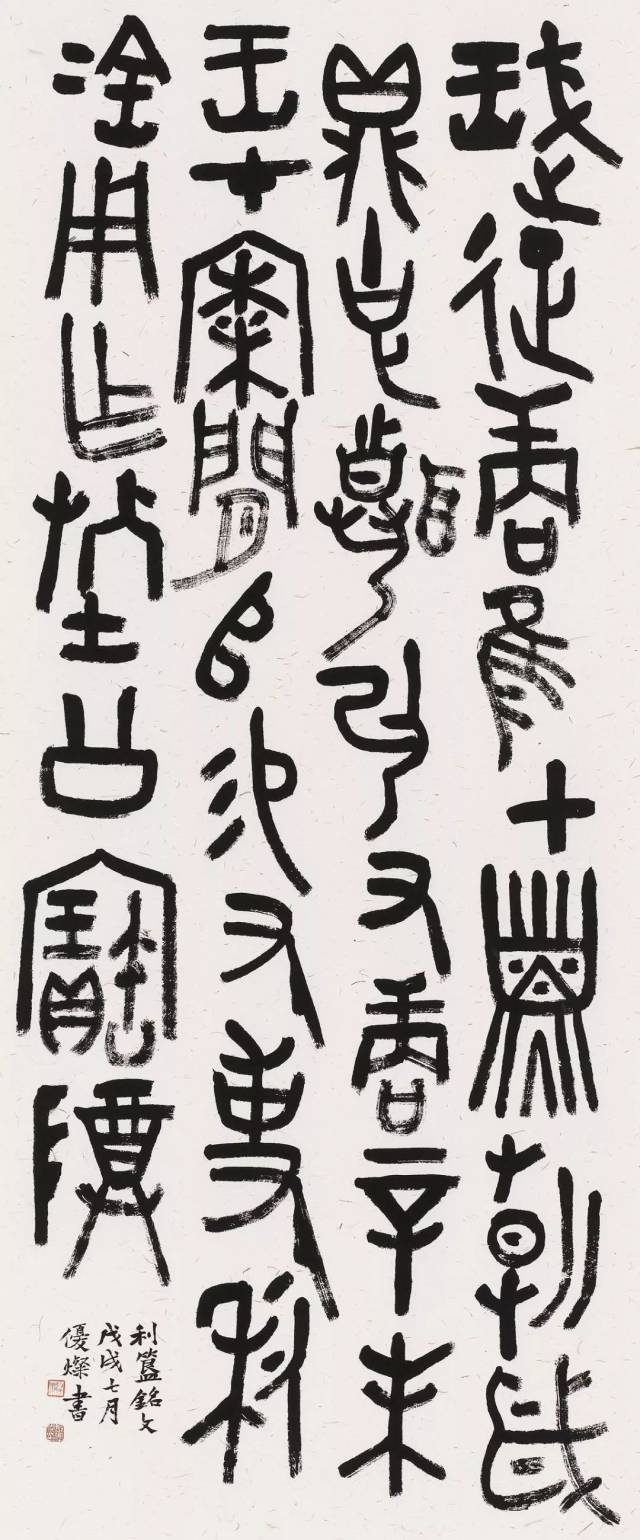 珷征商隹甲子朝歲
鼎克聞夙又商辛未
王才闌𠂤易又事利
金用乍公寶尊
利簋銘文
戊戌七月
優燦書